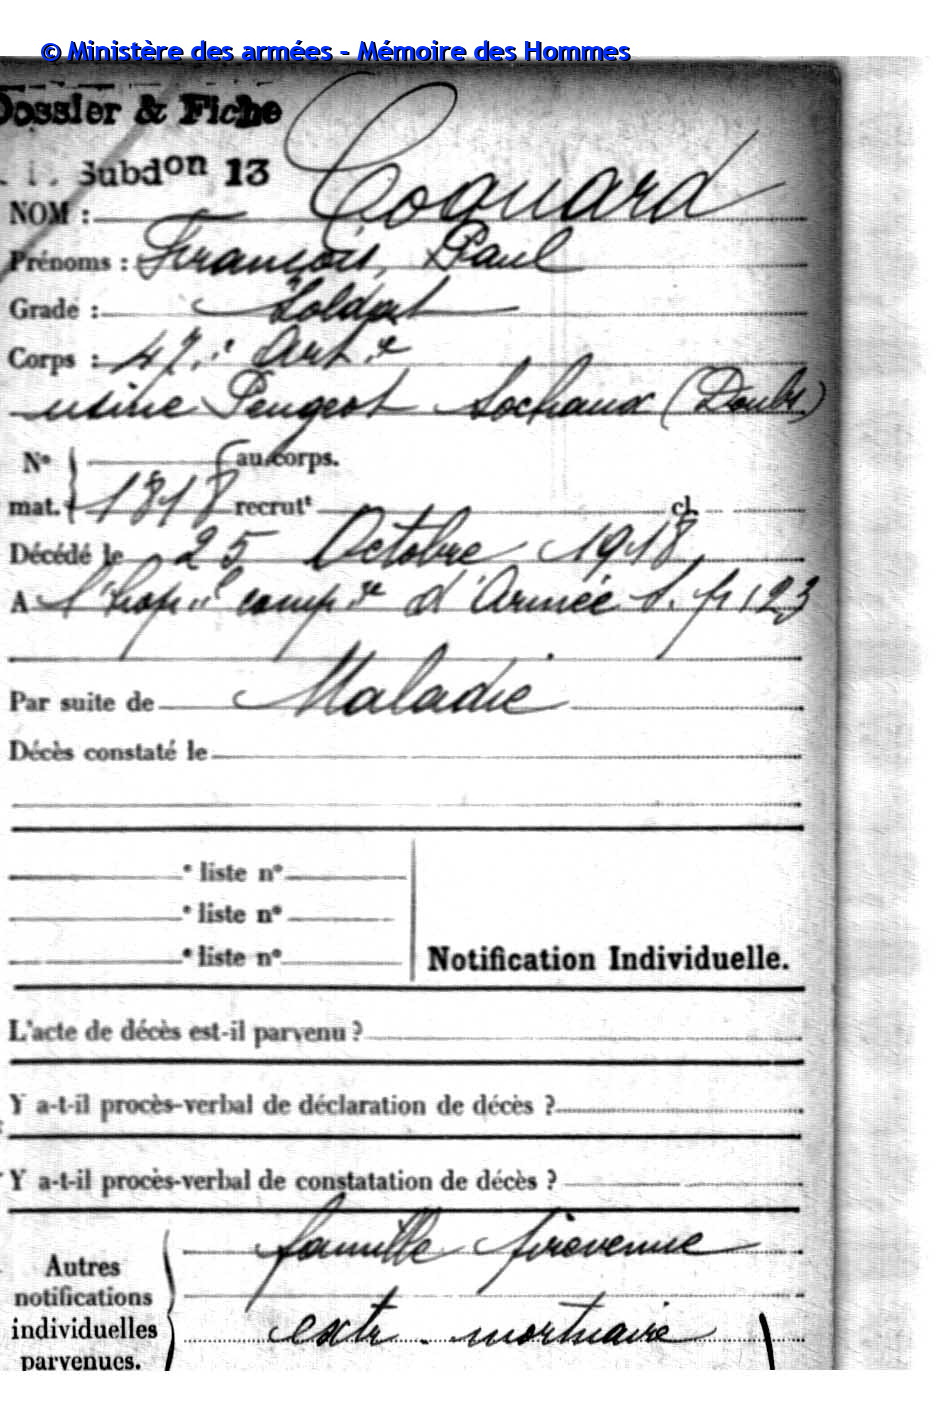 © Ministère des armées - Mémoire des Hommes
Dossier & Fiche
Subdon 13
NOM : Coquard
Prénoms : François, Paul
Grade : Soldat
Corps : 47e Artie
usine Peugeot Sochaux (Doubs)
No au corps.
mat. 1818 recrutt cl.
Décédé le 25 Octobre 1918
A l'hopal compre d'Armée S. p 123
Par suite de Maladie
Décès constaté le
e liste no
e liste no
e liste no
Notification Individuelle.
L'acte de décès est-il parvenu ?
Y a-t-il procès-verbal de déclaration de décès ?
Y a-t-il procès-verbal de constatation de décès ?
famille prévenue
Autres
notifications
individuelles extr. mortuaire
parvenues.